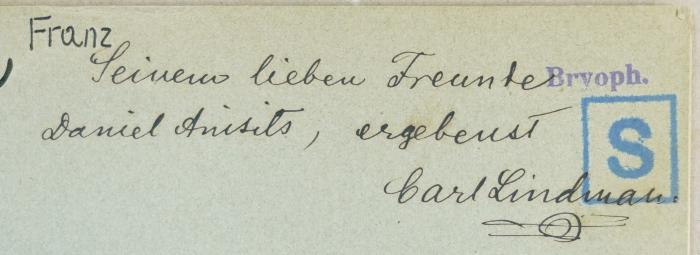 Franz
Seinem lieben Freunde Bryoph.
Daniel Anisits, ergebenst
S
Carl Lindman.